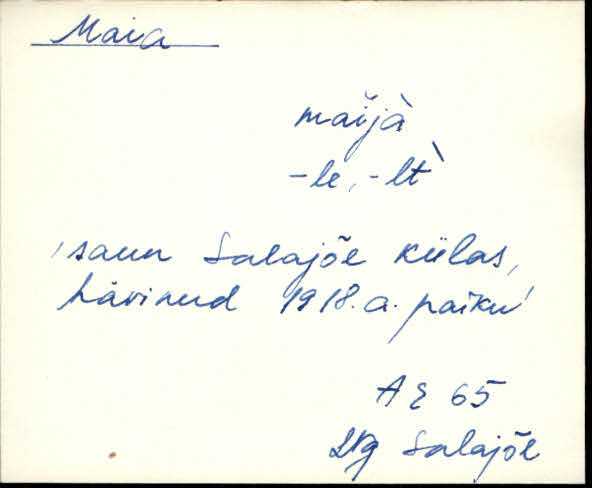 Maia
maijà
-le, -lt̀
'saun Salajõe külas,
hävinud 1918. a. paiku'
A E 65
Salajõe